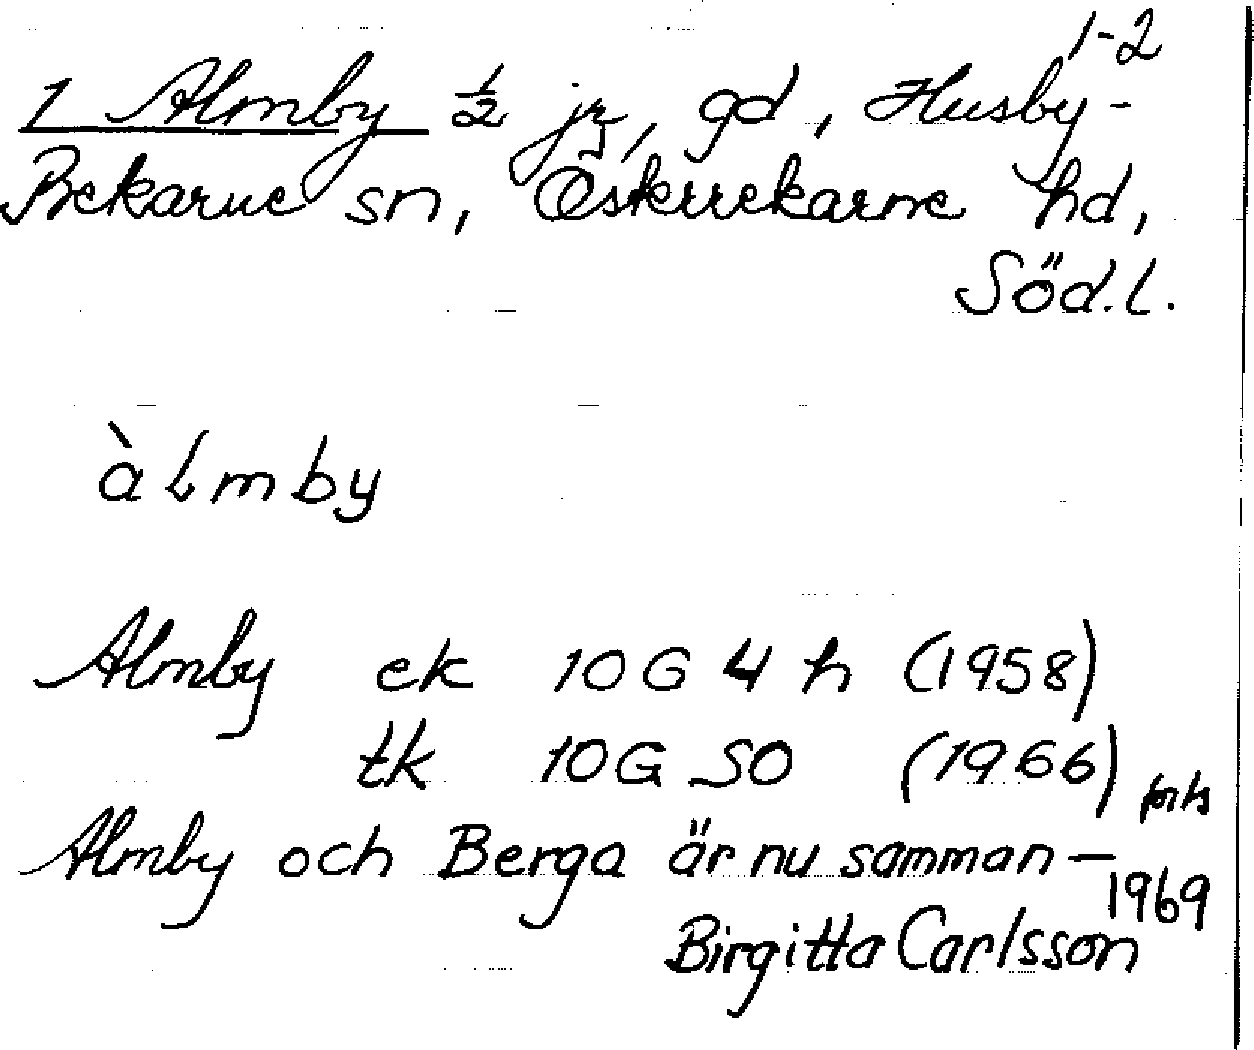 1-2
1 Almby ½ jz, gd, Husby-
Rekarne sn, Österrekarne hd,
Söd.l.
àlmby
Almby ek 10G 4 h (1958)
tk 10G SO (1966)
forts
Almby och Berga är nu samman-
1969
Birgitta Carlsson